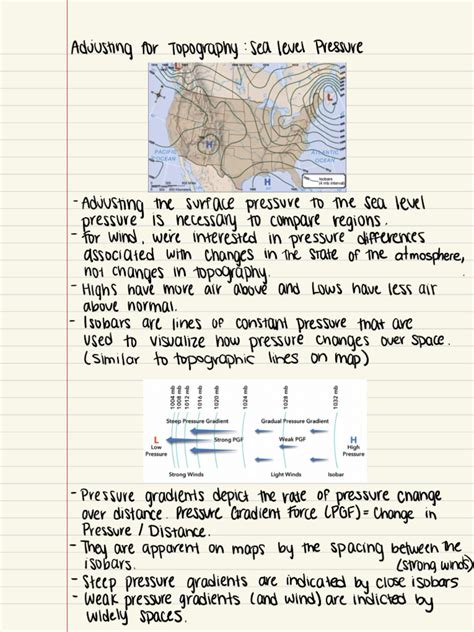 Adjusting for Topography : Sea level Pressure
L
L
H
H
PACIFIC
OCEAN
ATLANTIC
OCEAN
Isobars
- Adjusting the surface pressure to the sea level
pressure is necessary to compare regions.
- For wind, we're interested in pressure differences
associated with changes in the state of the atmosphere,
not changes in topography.
- Highs have more air above and Lows have less air
above normal.
- Isobars are lines of constant pressure that are
used to visualize how pressure changes over space.
(similar to topographic lines on map)
1004 mb
1008 mb
1012 mb
1016 mb
1020 mb
1024 mb
1028 mb
1032 mb
Steep Pressure Gradient
Gradual Pressure Gradient
L
Low
Pressure
Strong PGF
Weak PGF
H
High
Pressure
Strong Winds
Light Winds
Isobar
- Pressure gradients depict the rate of pressure change
over distance. Pressure Gradient Force (PGF) = Change in
Pressure / Distance.
- They are apparent on maps by the spacing between the
isobars. (strong winds)
- Steep pressure gradients are indicated by close isobars
- Weak pressure gradients (and wind) are indicted by
widely spaces.